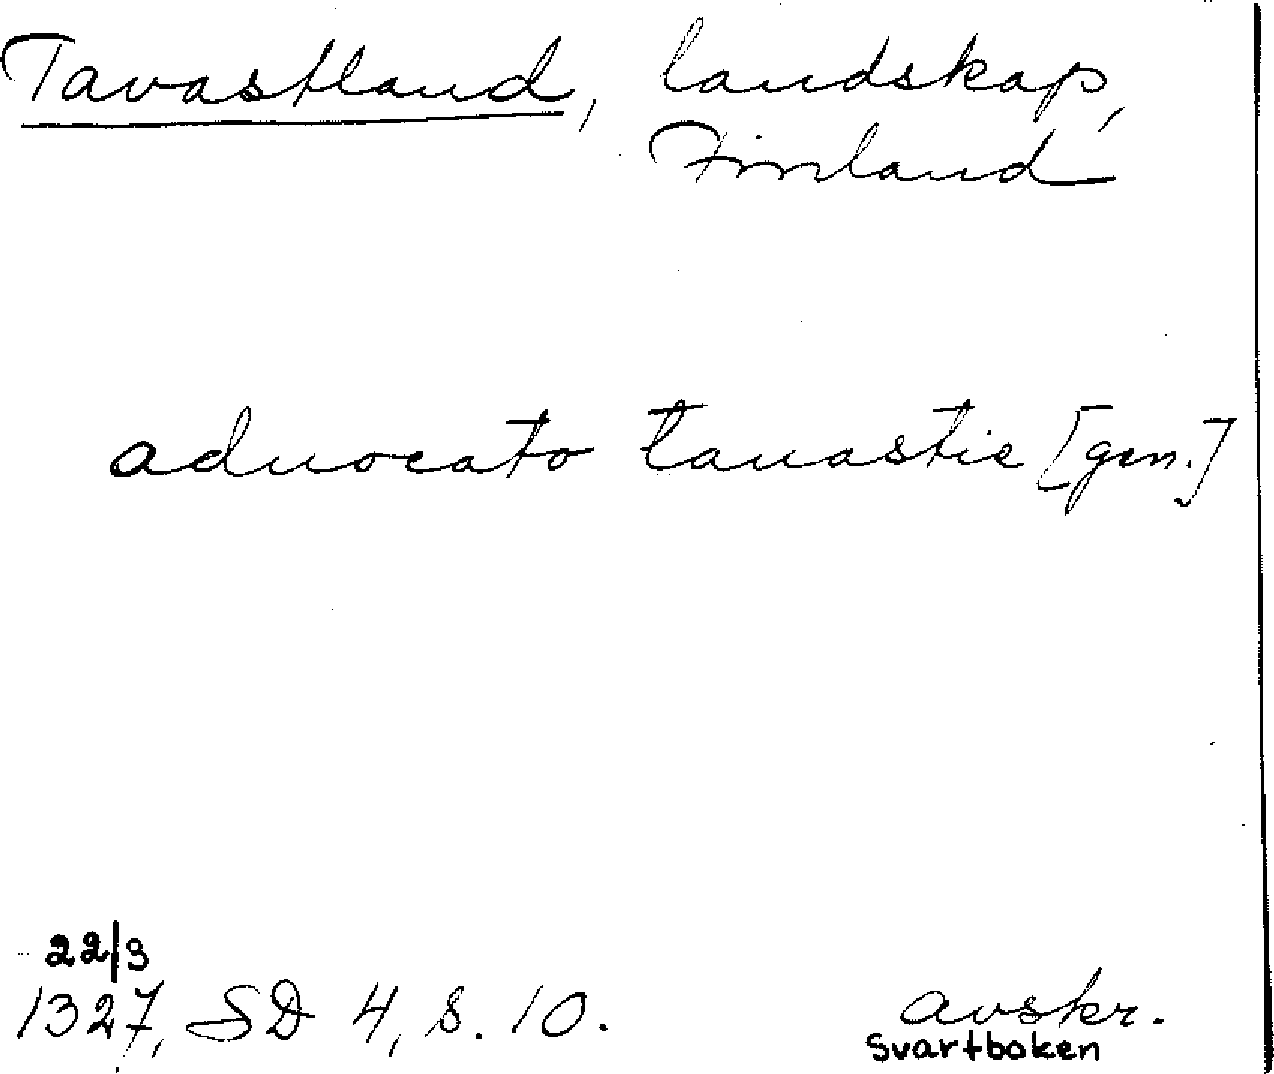 Tavastland, landskap,
Finland
aduocato tauastie [gen.]
22/3
1327, SD 4, s. 10.
avskr.
Svartboken